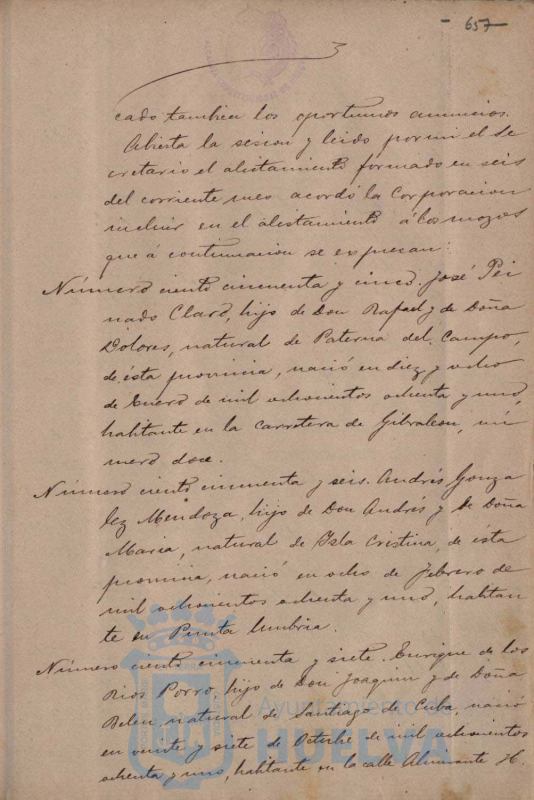 - 657 -
cado tambien los oportunos anuncios.
Abierta la sesion y leido por mi el Se
cretario el alistamiento formado en seis
del corriente mes acordó la Corporacion
incluir en el alistamiento á los mozos
que á continuacion se expresan:
Número ciento cincuenta y cinco. José Pei
nado Claro, hijo de Don Rafael y de Doña
Dolores, natural de Paterna del Campo,
de ésta provincia, nació en diez y ocho
de Enero de mil ochocientos ochenta y uno,
habitante en la carretera de Gibraleon, nú
mero doce.
Número ciento cincuenta y seis. Andrés Gonza
lez Mendoza, hijo de Don Andrés y de Doña
Maria, natural de Isla Cristina, de ésta
provincia, nació en ocho de Febrero de
mil ochocientos ochenta y uno, habitan
te en Punta Umbria.
Número ciento cincuenta y siete. Enrique de los
Rios Porro, hijo de Don Joaquin y de Doña
Belen, natural de Santiago de Cuba, nació
en veinte y siete de Octubre de mil ochocientos
ochenta y uno, habitante en la calle Almirante H.
Ayuntamiento de
HUELVA